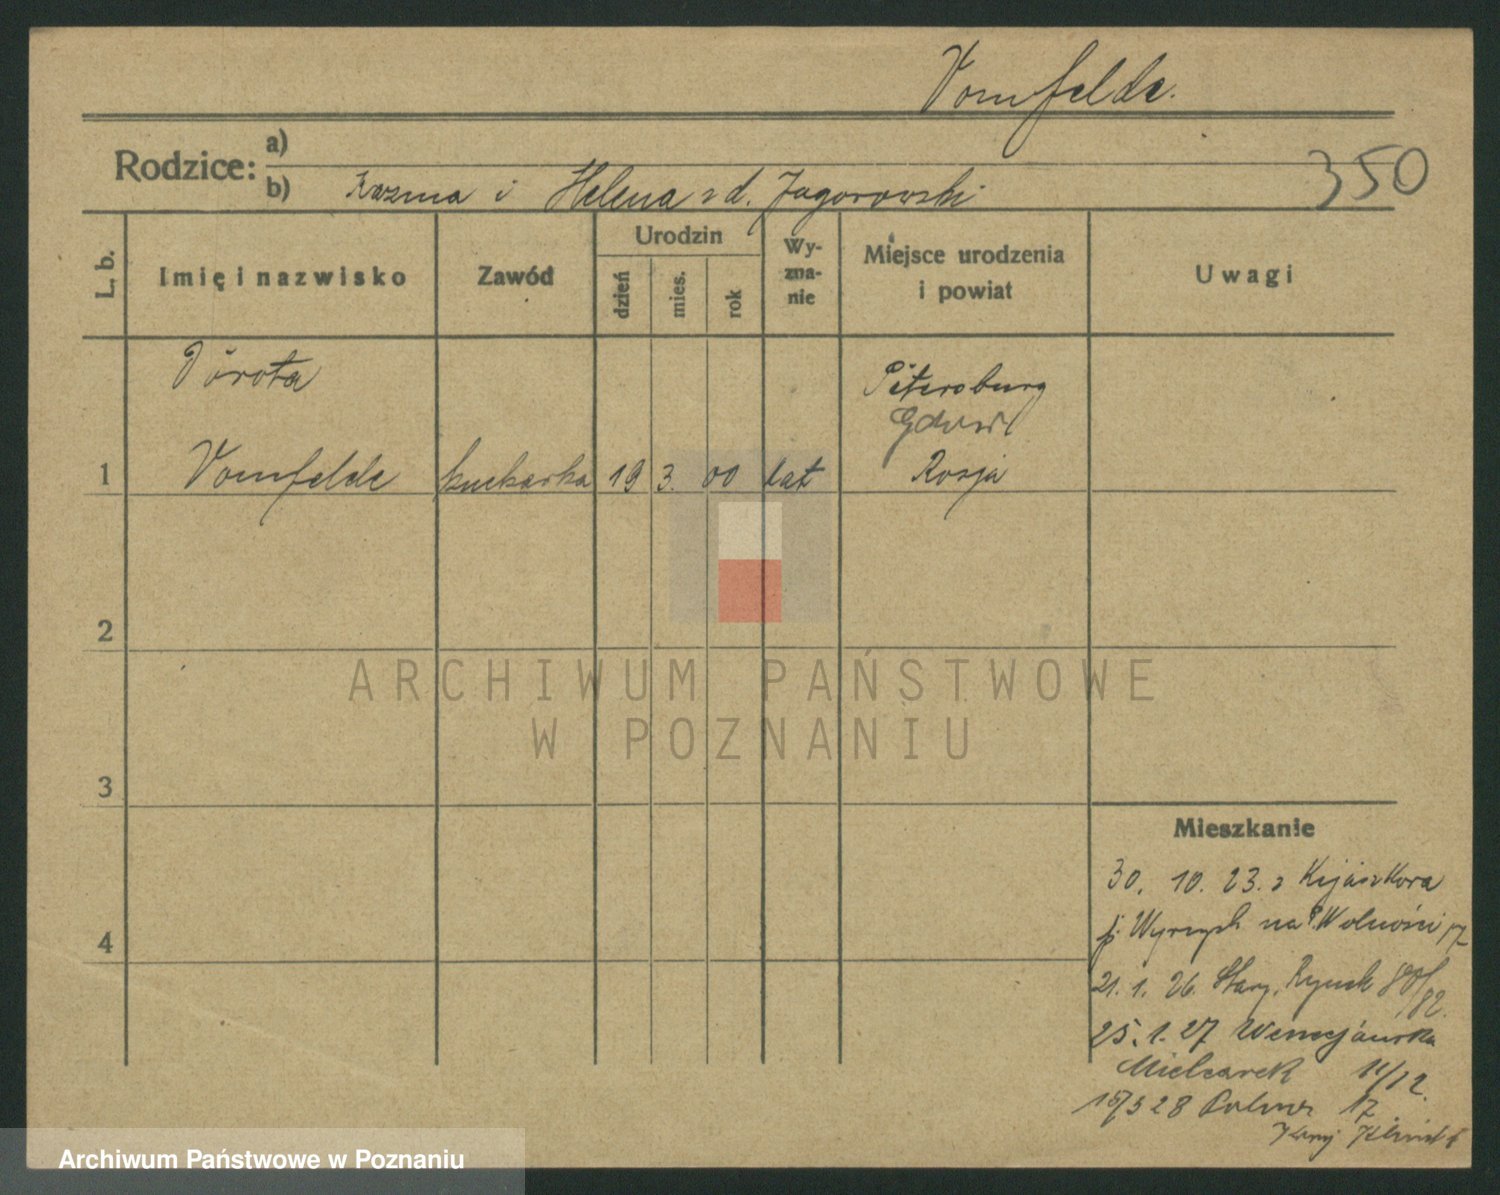 Vomfelde.
Rodzice:
a)
b) Kozma i Helena z d. Jagorowski
350
L. b.
Imię i nazwisko
Zawód
Urodzin
dzień
mies.
rok
Wy-
zna-
nie
Miejsce urodzenia
i powiat
Uwagi
Dorota
Petersburg
1 Vomfelde kucharka 19 3. 00 kat Rosja
2
ARCHIWUM PAŃSTWOWE
W POZNANIU
3
Mieszkanie
30. 10. 23. z
4
p. Wyrzysk na Pl Wolności 17
21. 1. 26. Stary Rynek 80/
82.
25. 1. 27 Wenecjańska
Mielcarek 11/12.
28 17
Archiwum Państwowe w Poznaniu